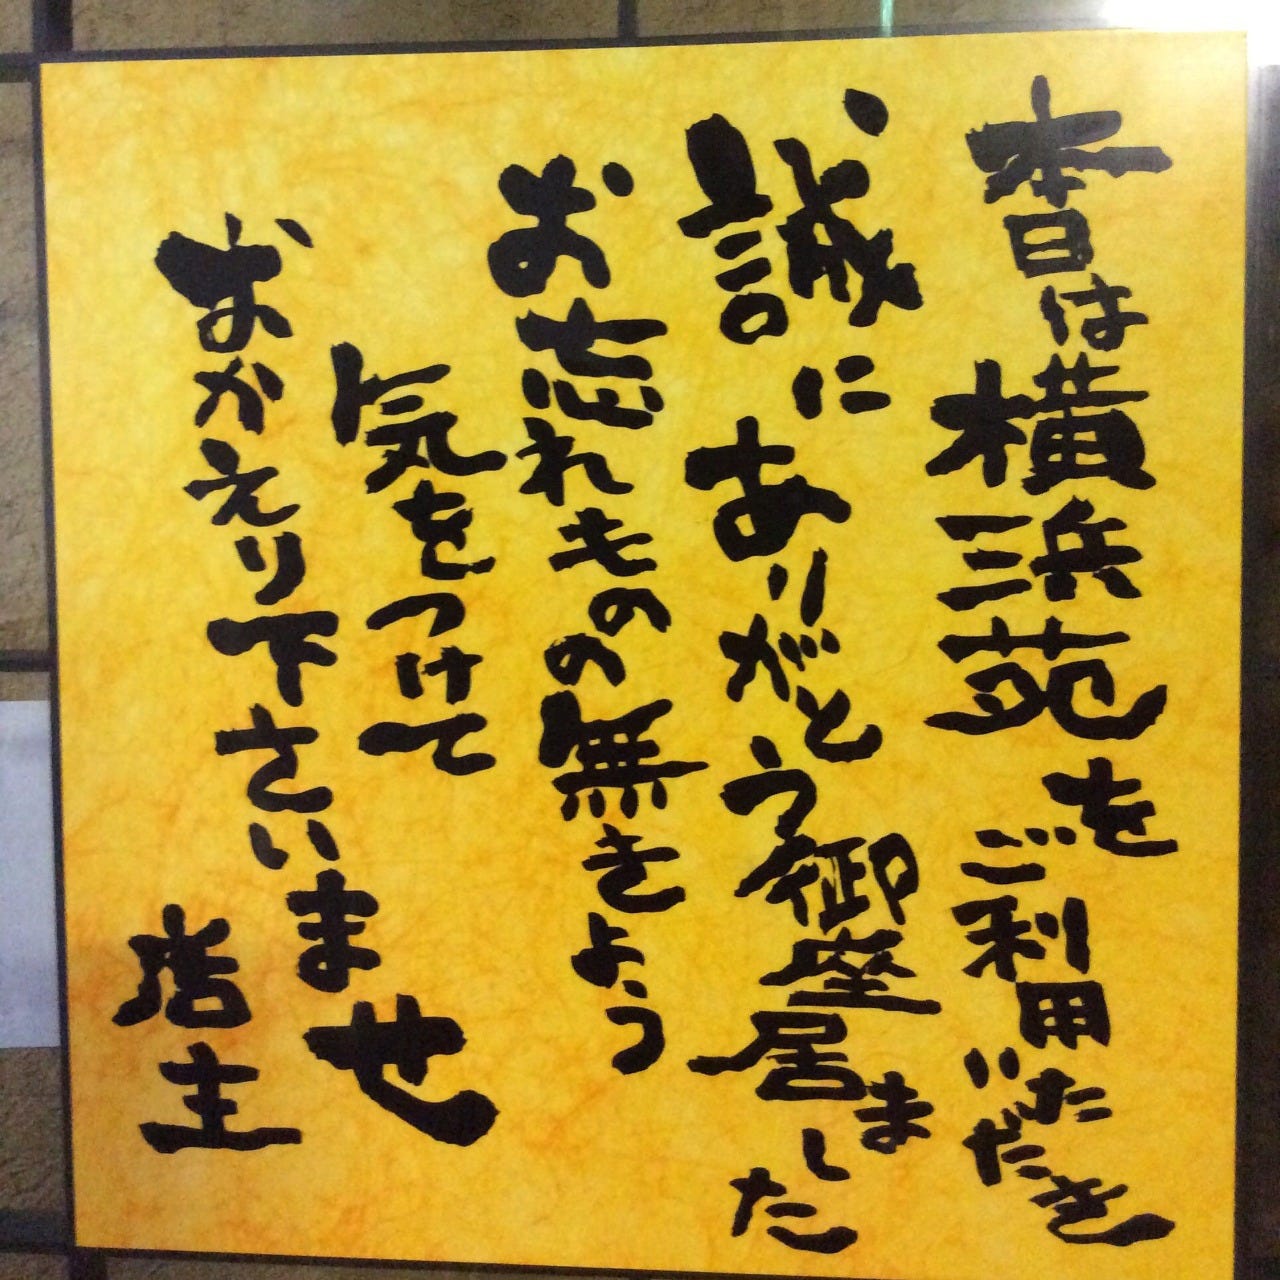 本日は横浜苑をご利用いただき
誠にありがとう御座居ました
お忘れものの無きよう
気をつけて
おかえり下さいませ
店主